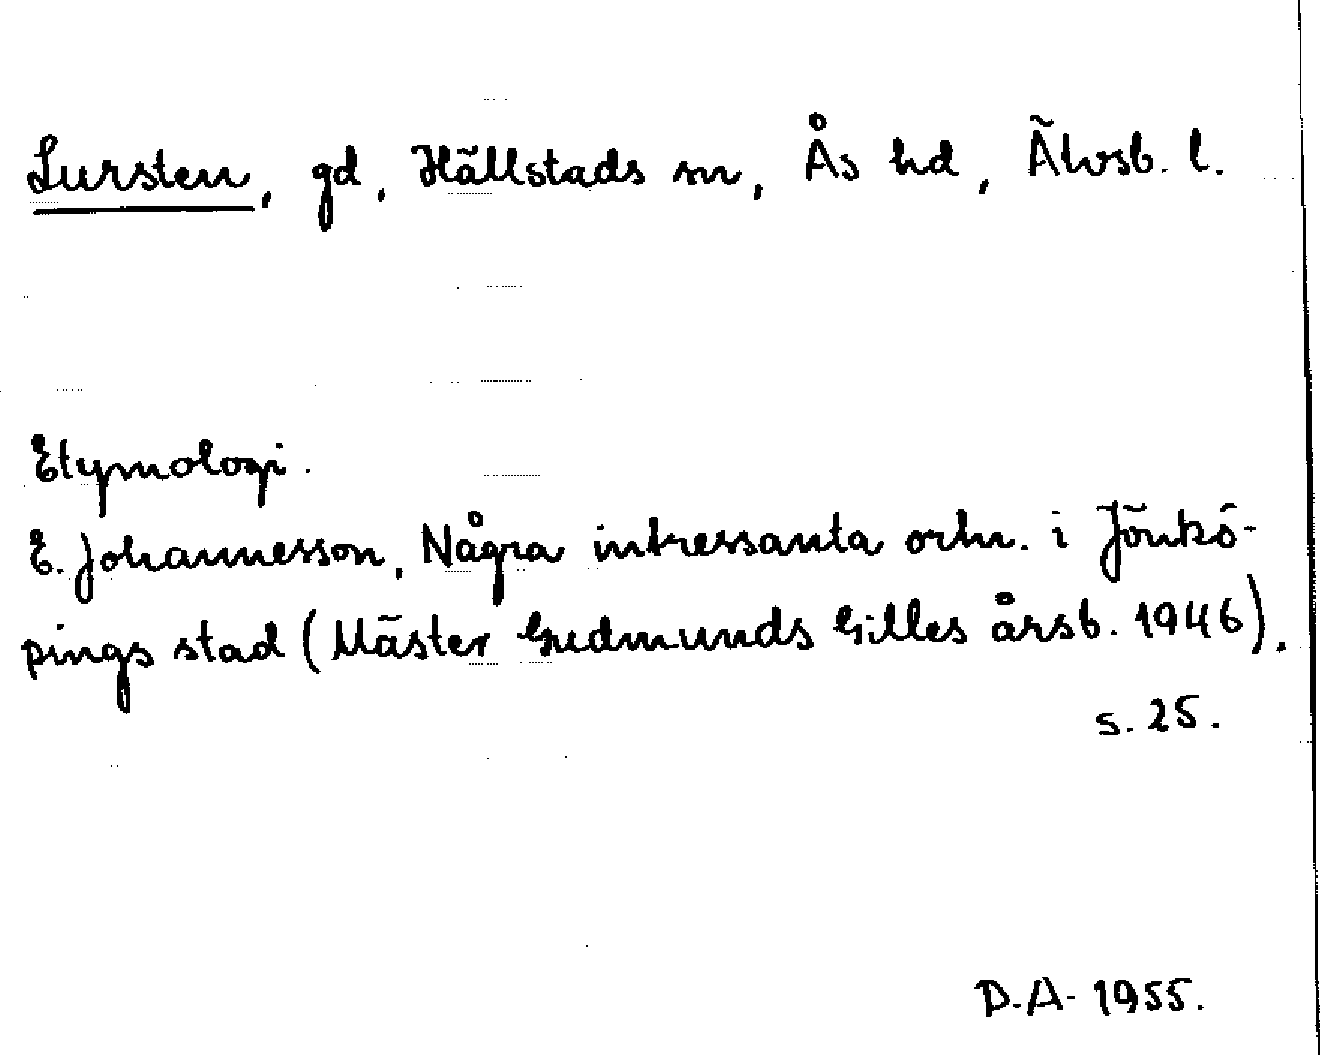 Lursten, gd, Hällstads sn, Ås hd, Älvsb. l.
Etymologi.
E. Johannesson, Några intressanta ortn. i Jönkö-
pings stad (Mäster Gudmunds Gilles årsb. 1946).
s. 25.
D.A. 1955.